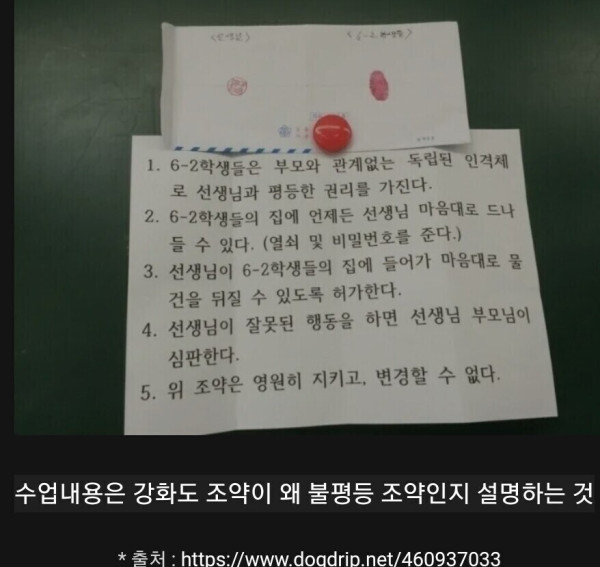 <선생님>
<6-2 학생들>
1. 6-2학생들은 부모와 관계없는 독립된 인격체
로 선생님과 평등한 권리를 가진다.
2. 6-2학생들의 집에 언제든 선생님 마음대로 드나
들 수 있다. (열쇠 및 비밀번호를 준다.)
3. 선생님이 6-2학생들의 집에 들어가 마음대로 물
건을 뒤질 수 있도록 허가한다.
4. 선생님이 잘못된 행동을 하면 선생님 부모님이
심판한다.
5. 위 조약은 영원히 지키고, 변경할 수 없다.
수업내용은 강화도 조약이 왜 불평등 조약인지 설명하는 것
* 출처 : https://www.dogdrip.net/460937033